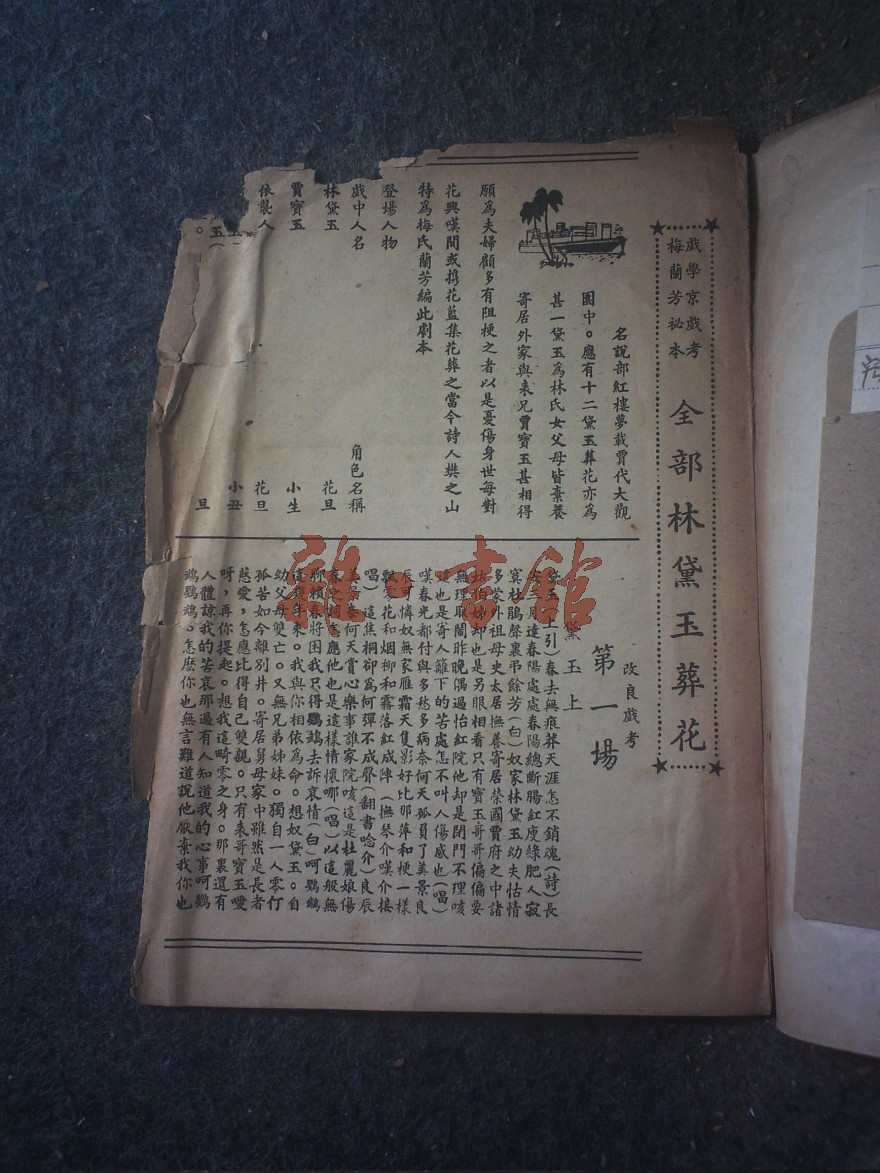 戲學京戲考
梅蘭芳秘本
全部林黛玉葬花
名說部紅樓夢載賈代大觀
園中。應有十二黛玉葬花亦為
甚一黛玉為林氏女父母皆棄養
寄居外家與表兄賈寶玉甚相得
願為夫婦顧多有阻梗之者以是憂傷身世每對
花興嘆間或携花藍集花葬之當今詩人樊之山
特為梅氏蘭芳編此劇本
登場人物
戲中人名 角色名稱
林黛玉 花旦
賈寶玉 小生
依襲人 花旦
小丑
旦
改良戲考
第一場
黛玉上
黛玉(上引)春去無痕莽天涯怎不銷魂(詩)長
三月達春陽處處春陽總斷腸紅瘦綠肥人寂
寞杜鵑聲裏弔餘芳(白)奴家林黛玉幼失怙恃
多蒙外祖母史太居撫養寄居榮國賈府之中諸
姑伯姊却也是另眼相看只有寶玉哥哥偏偏要
無理取鬧昨晚偶過怡紅院他却是閉門不理咳
這也是寄人籬下的苦處怎不叫人傷感也(唱)
嘆春光都付與多愁多病奈何天孤負了美景良
辰可憐奴無家雁霜天隻影好比那萍和梗一樣
飄零花和烟柳和霧落紅成陣(撫琴介嘆介接
唱)這焦桐卻為何彈不成聲(翻書唸介)良辰
美景奈何天賞心樂事誰家院咳這是杜麗娘傷
春之詞怎應他也是這樣情懷哪(唱)以這般無
聊賴春將困我只得鸚鵡去訴哀情(白)呵鸚鵡
這幾年來。我與你相依為命。想奴黛玉。自
幼父母雙亡。又無兄弟姊妹。獨自一人零仃
孤苦如今離別井。寄居舅母家中雖然是長者
慈愛，怎應比得自己雙親。只有表哥寶玉噯
呀，再你提起。想我這畸零之身。那裏還有
人體諒我的苦哀那過有人知道我的心事呵鸚
鵡鸚鵡。怎麽你也無言難道說他厭棄我你也
雜·書館